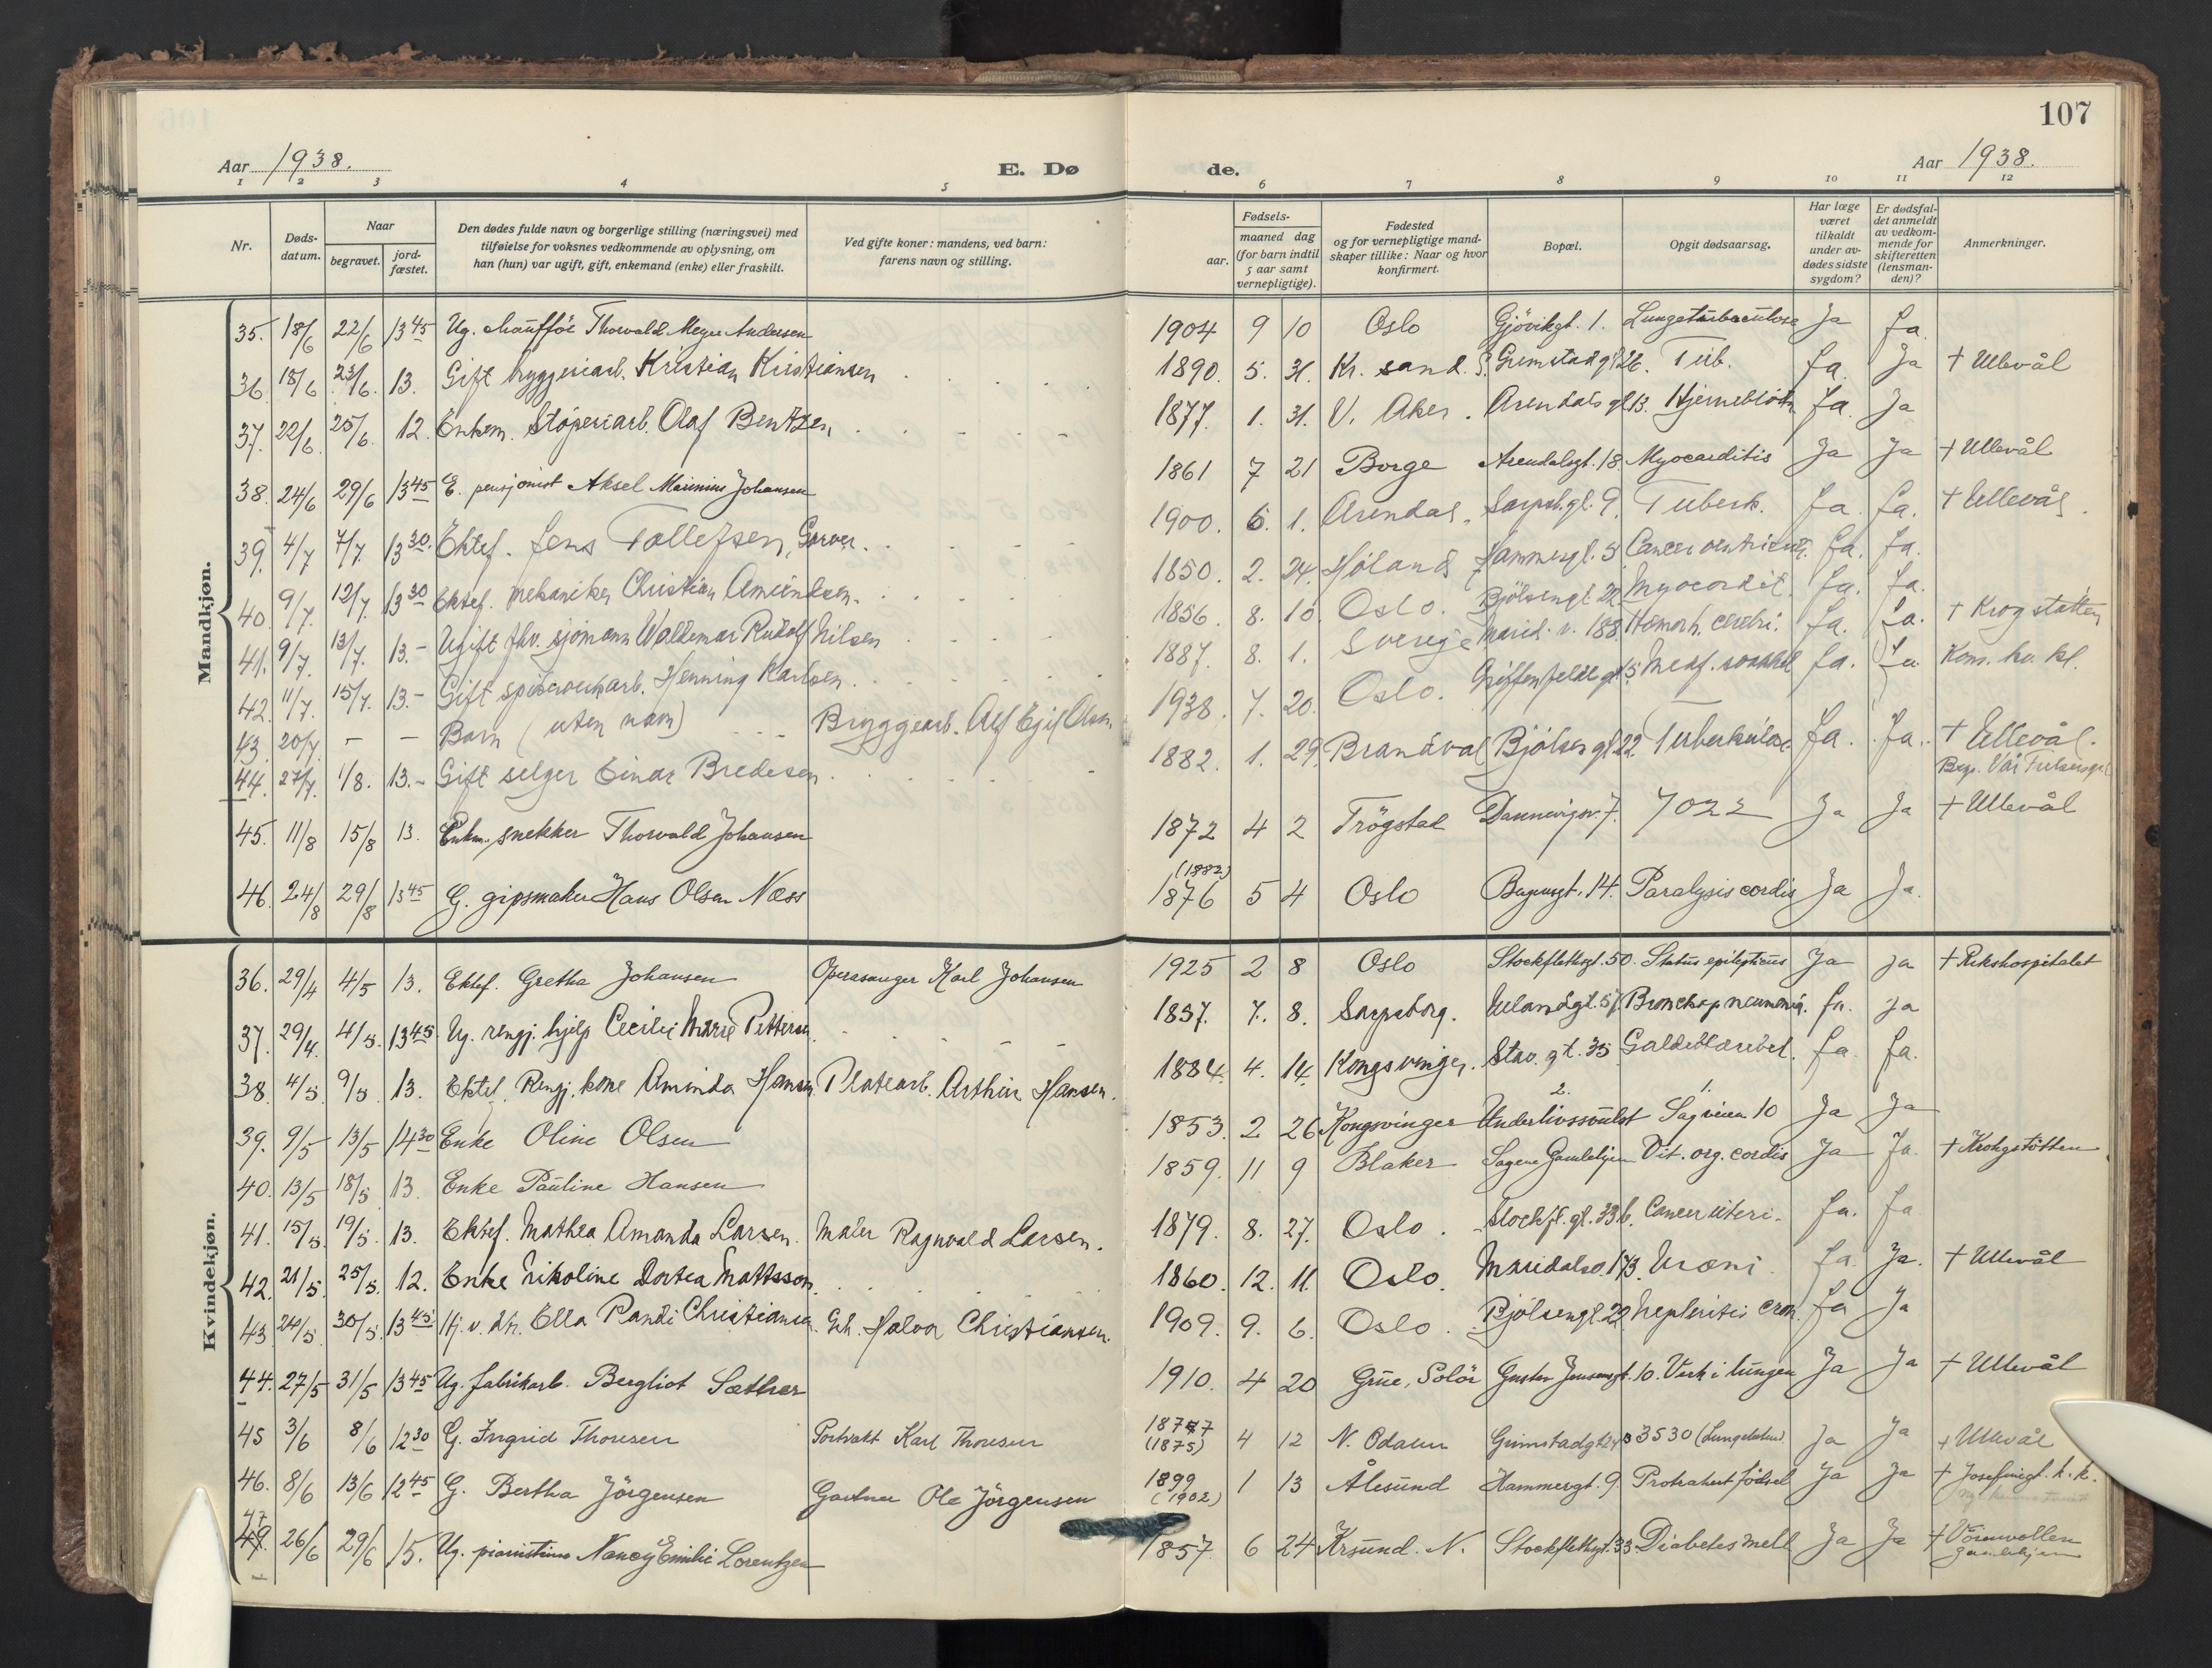 107
Aar 1938.
E. Dø
de.
Aar 1938.
1 2 3 4 5 6 7 8 9 10 11 12
Nr.
Døds-
datum.
Naar
begravet.
jord-
fæstet.
Den dødes fulde navn og borgerlige stilling (næringsvei) med
tilføielse for voksnes vedkommende av oplysning, om
han (hun) var ugift, gift, enkemand (enke) eller fraskilt.
Ved gifte koner: mandens, ved barn:
farens navn og stilling.
Fødsels-
aar.
maaned dag
(for barn indtil
5 aar samt
vernepligtige).
Fødested
og for vernepligtige mand-
skaper tillike: Naar og hvor
konfirmert.
Bopæl.
Opgit dødsaarsag.
Har læge
været
tilkaldt
under av-
dødes sidste
sygdom?
Er dødsfal-
det anmeldt
av vedkom-
mende for
skifteretten
(lensman-
den)?
Anmerkninger.
Mandkjøn.
35. 18/6 22/6 13 45 Ug. chaufför Thorvald Meyer Andersen 1904 9 10 Oslo Gjövikgt. 1. Lungetuberculose Ja Ja
36. 18/6 23/6. 13. Gift bryggeriarb. Kristian Kristiansen 1890. 5. 31. Kr. sand. S. Grimstad gt 26. Tub. Ja Ja + Ullevål
37. 22/6 25/6. 12. Enkem. Støperiarb. Olaf Bentzen 1877. 1. 31. V. Aker. Arendals gt 13. Hjerneblödn. Ja. Ja
38. 24/6 29/6 13 45 E. pensjonist Aksel Marinius Johansen 1861 7 21 Borge Arendalsgt. 18 Myocarditis Ja Ja + Ullevål
39. 4/7 7/7. 13 30. Ektef. Jens Tollefsen, Garver. 1900. 6. 1. Arendal. Sarpsb.gt. 9. Tuberk. Ja. Ja. + Ullevål.
40. 9/7. 12/7. 13 30 Ektef. mekaniker Christian Amundsen. 1850. 2. 24. Höland Hammergt. 5. Cancer ventriculi. Ja. Ja.
41. 9/7. 13/7. 13.- Ugift fhv. sjömann Waldemar Rudolf Nilsen 1856. 8. 10. Oslo. Bjölsengt. 22. Myocardit. Ja. Ja.
42. 11/7. 15/7. 13.- Gift spikerverkarb. Henning Karlsen 1887. 8. 1. Sverige Marid. v. 188. Hæmorh. cerebri. Ja. Ja. + Krogstøtten
43. 20/7. - - Barn (uten navn) Bryggearb. Alf Egil Olsen 1938. 7. 20. Oslo. Griffenfeldts gt. 5. Ja. Ja Kom. kv. kl.
44. 27/7. 1/8. 13.- Gift selger Einar Bredesen 1882. 1. 29. Brandval Bjölsen gt 22. Tuberkulose Ja. Ja. + Ullevål.
Begr. Vår Frelsersgr.
45. 11/8 15/8 13. Enkm. snekker Thorvald Johansen 1872 4 2 Trögstad Dannevigsv. 7. 7022 Ja Ja + Ullevål
46. 24/8 29/8 13 45 G. gipsmaker Hans Olsen Næss (1882) 1876 5 4 Oslo Bergensgt. 14. Paralysis cordis Ja Ja.
Kvindekjøn.
36. 29/4 4/5 13. Ektef. Gretha Johansen Operasanger Karl Johansen 1925 2 8 Oslo Stockflethsgt. 50. Status epilepticus Ja ja + Rikshospitalet
37. 29/4. 4/5. 13 45. Ug. rengj. hjelp Cecilie Marie Pettersen 1857. 7. 8. Sarpsborg. Uelandsgt. 57. Bronchopneumonia. Ja. ja
38. 4/5 9/5 13. Ektef. Rengj. kone Aminda Hansen Platearb. Arthur Hansen. 1884. 4. 14. Kongsvinger. Stav. gt. 35 Galdeblærebet. Ja. Ja.
39. 9/5 13/5 14 30 Enke Oline Olsen 1853. 2 26 Kongsvinger 2. Underlivssvulst 1. Sagveien 10 Ja Ja
40. 13/5 18/5 13. Enke Pauline Hansen 1859. 11 9 Blaker Sagene Gamlehjem Vit. org. cordis Ja Ja. + Krohgstötten
41. 15/5. 19/5. 13. Ektef. Mathea Amanda Larsen. Maler Ragnvald Larsen. 1879. 8. 27. Oslo. Stockfl. gt. 33 b. Cancer uteri. Ja. Ja
42. 21/5. 25/5. 12. Enke Nikoline Dortea Mattsson. 1860. 12. 11. Oslo. Maridalsv. 173. Uræmi. Ja. Ja. + Ullevål
43 24/5. 30/5. 13 45 Hj. v. dtr. Ella Randi Christiansen. Gch. Halvor Christiansen. 1909. 9. 6. Oslo. Bjölsengt. 22. Nephritis cron. Ja Ja
44. 27/5 31/5 13 45 Ug. fabrikarb. Bergliot Sæther 1910. 4 20 Grue, Solör Gustav Jensensgt. 10. Verk i lungen Ja Ja + Ullevål
45 3/6 8/6 12 30 G. Ingrid Thoresen Portvakt Karl Thoresen 1877 (1875) 4 12 N. Odalen Grimstadgt 24 3530 (Lungebetend. Ja Ja + Ullevål
46. 8/6 13/6 12 45 G. Bertha Jörgensen Gartner Ole Jörgensen 1899 (1902) 1 13 Ålesund Hammergt. 9. Protrahert födsel Ja Ja + Josefinegt. k. k.
47 26/6 29/6 15. Ug. pianistinne Nancy Emilie Lorentzen 1857. 6 24 Krsund. N. Stockflethsgt. 33 Diabetes mell Ja Ja + Vörnvollen
Gamlehjem